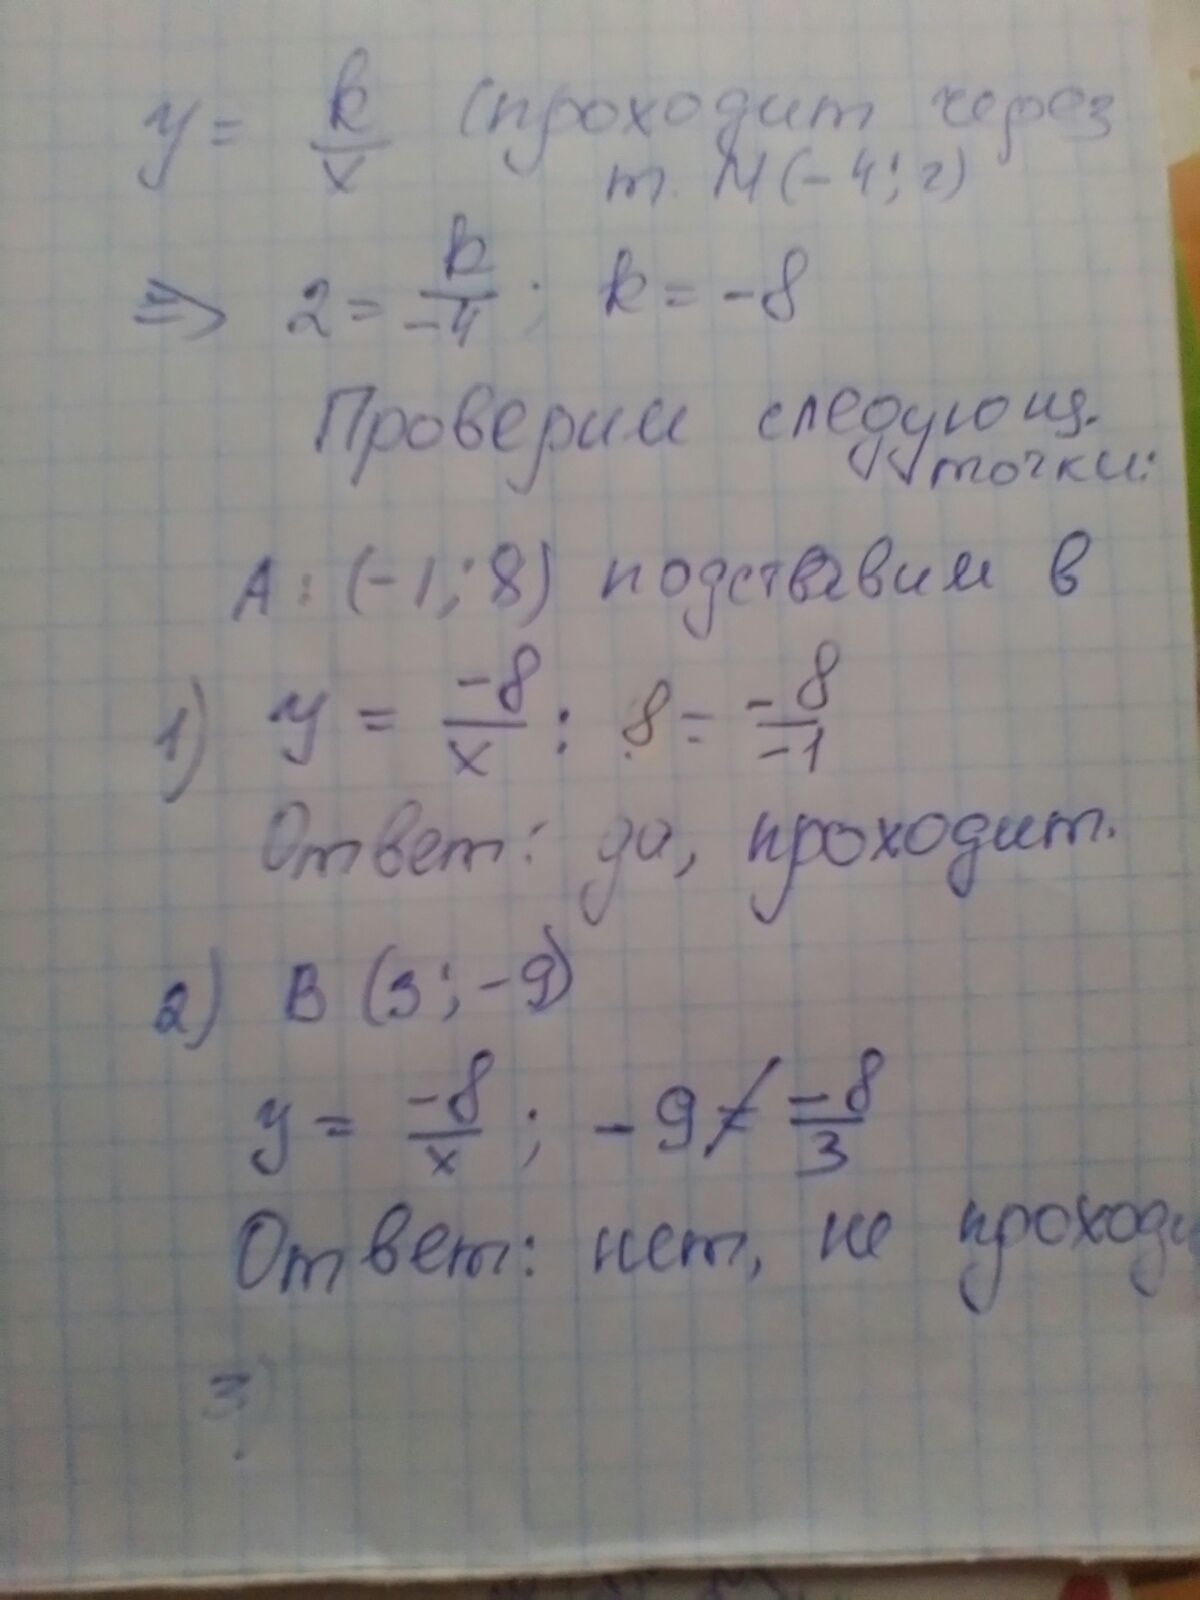 y = k/x (проходит через
т. М(-4; 2)
=> 2 = k/-4; k = -8
Проверим следующ.
точки:
А: (-1; 8) подставим в
1) y = -8/x : 8 = -8/-1
Ответ: да, проходит.
2) В (3; -9)
y = -8/x ; -9 ≠ -8/3
Ответ: нет, не проходи
3)